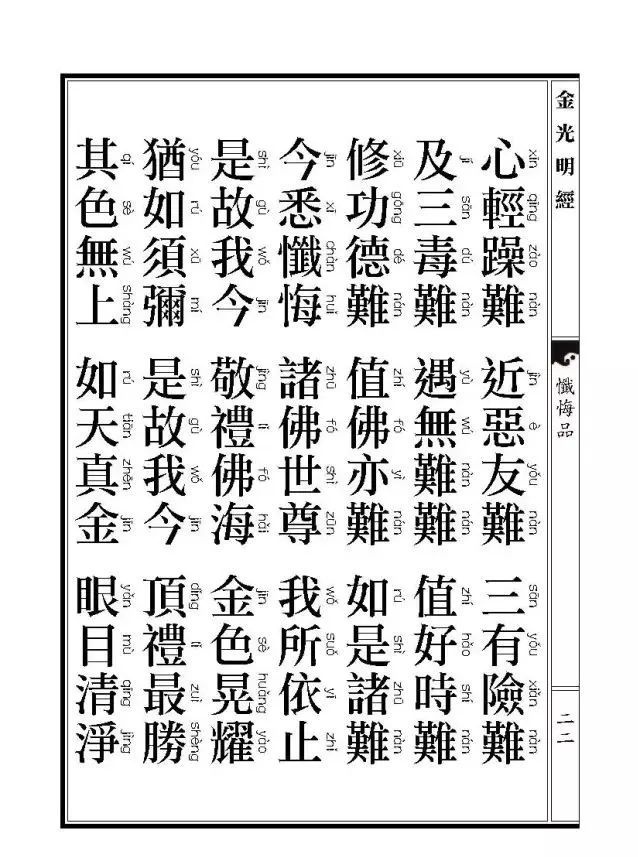 金光明經
懺悔品
二二
心輕躁難 近惡友難 三有險難
xīn qīng zào nán jìn è yǒu nán sān yǒu xiǎn nán
及三毒難 遇無難難 值好時難
jí sān dú nán yù wú nán nán zhí hǎo shí nán
修功德難 值佛亦難 如是諸難
xiū gōng dé nán zhí fó yì nán rú shì zhū nán
今悉懺悔 諸佛世尊 我所依止
jīn xī chàn huǐ zhū fó shì zūn wǒ suǒ yī zhǐ
是故我今 敬禮佛海 金色晃耀
shì gù wǒ jīn jìng lǐ fó hǎi jīn sè huǎng yào
猶如須彌 是故我今 頂禮最勝
yóu rú xū mí shì gù wǒ jīn dǐng lǐ zuì shèng
其色無上 如天真金 眼目清淨
qí sè wú shàng rú tiān zhēn jīn yǎn mù qīng jìng